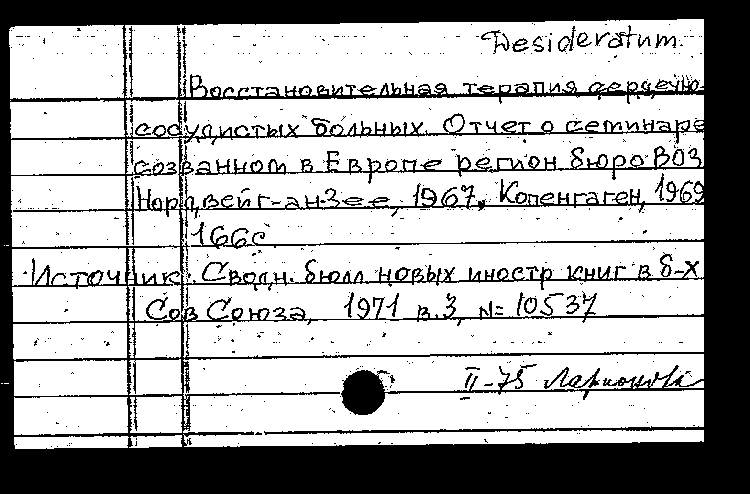 Desideratum.
Восстановительная терапия сердечно-
сосудистых больных. Отчет о семинаре
созванном в Европе регион бюро ВОЗ
Нордвейг-ан-Зее, 1967. Копенгаген, 1969
166с.
Источник: Сводн. бюлл новых иностр книг в б-х
Сов Союза, 1971 в.3, № 10537
II-75 Ларионова